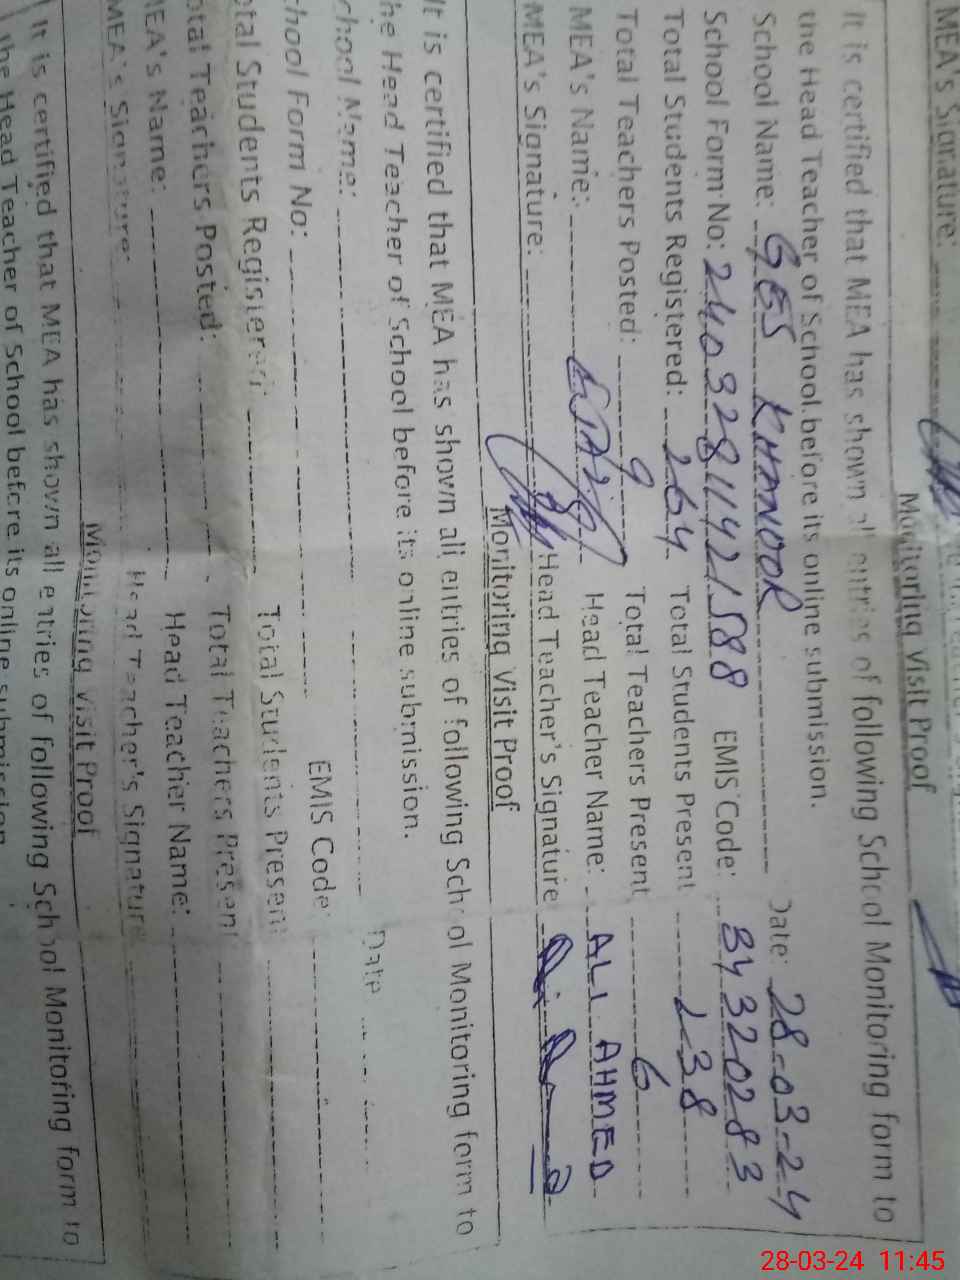 MEA's Signature:
Monitoring Visit Proof
It is certified that MEA has shown all entries of following School Monitoring form to
the Head Teacher of School before its online submission.
School Name: GES KHANOOR Date: 28-03-24
School Form No: 24032811421588 EMIS Code: 34320283
Total Students Registered: 264 Total Students Present 238
Total Teachers Posted: 9 Total Teachers Present 6
MEA's Name: Head Teacher Name: ALI AHMED
MEA's Signature: Head Teacher's Signature
Monitoring Visit Proof
It is certified that MEA has shown all entries of following School Monitoring form to
the Head Teacher of School before its online submission.
School Name: Date
School Form No: EMIS Code:
Total Students Registered: Total Students Present
Total Teachers Posted: Total Teachers Present
MEA's Name: Head Teacher Name:
MEA's Signature: Head Teacher's Signature
Monitoring Visit Proof
It is certified that MEA has shown all entries of following School Monitoring form to
the Head Teacher of School before its online submission
28-03-24 11:45